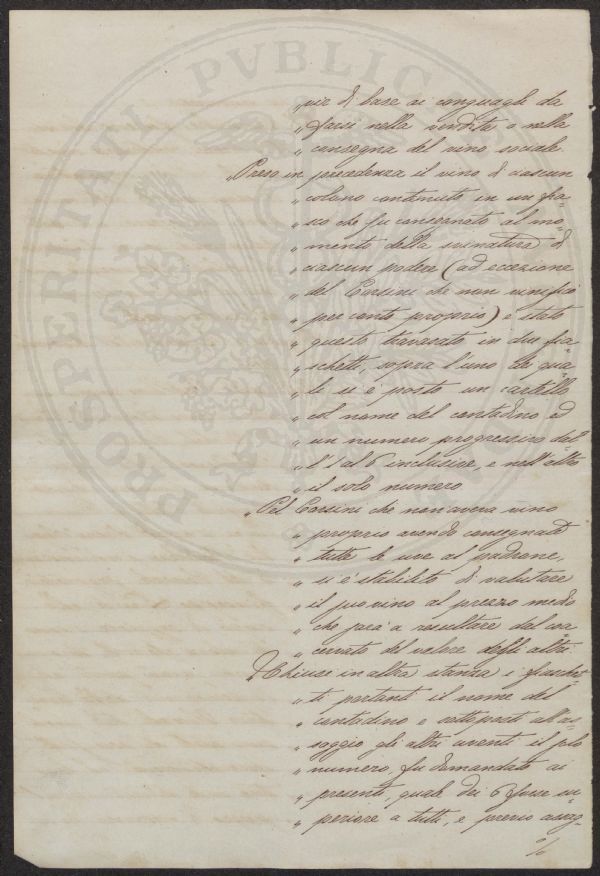 „ vir di base ai conguagli da
„ farsi nella vendita o nella
„ consegna del vino sociale.
„ Preso in precedenza il vino di ciascun
„ colono contenuto in un fia=
„ sco che fu consegnato al mo=
„ mento della svinatura di
„ ciascun podere (ad eccezione
„ del Corsini che non vinificò
„ per conto proprio) è stato
„ questo travasato in due fia=
„ schetti, sopra l'uno dei qua=
„ li si è posto un cartello
„ col nome del contadino ed
„ un numero progressivo dal=
„ l'1 al 6 inclusive, e nell'altro
„ il solo numero
„ Pel Corsini che non aveva vino
„ proprio avendo consegnato
„ tutte le uve al padrone,
„ si è stabilito di valutare
„ il suo vino al prezzo medio
„ che sarà a resultare dal
„ del valore degli altri.
„ Chiusi in altra stanza i fiaschet=
„ ti portanti il nome del
„ contadino e sottoposti all'as=
„ saggio gli altri aventi il solo
„ numero, fu domandato ai
„ presenti, quale dei 6 fosse su=
„ periore a tutti, e previo assag=
%
PROSPERITATI PVBLICAE